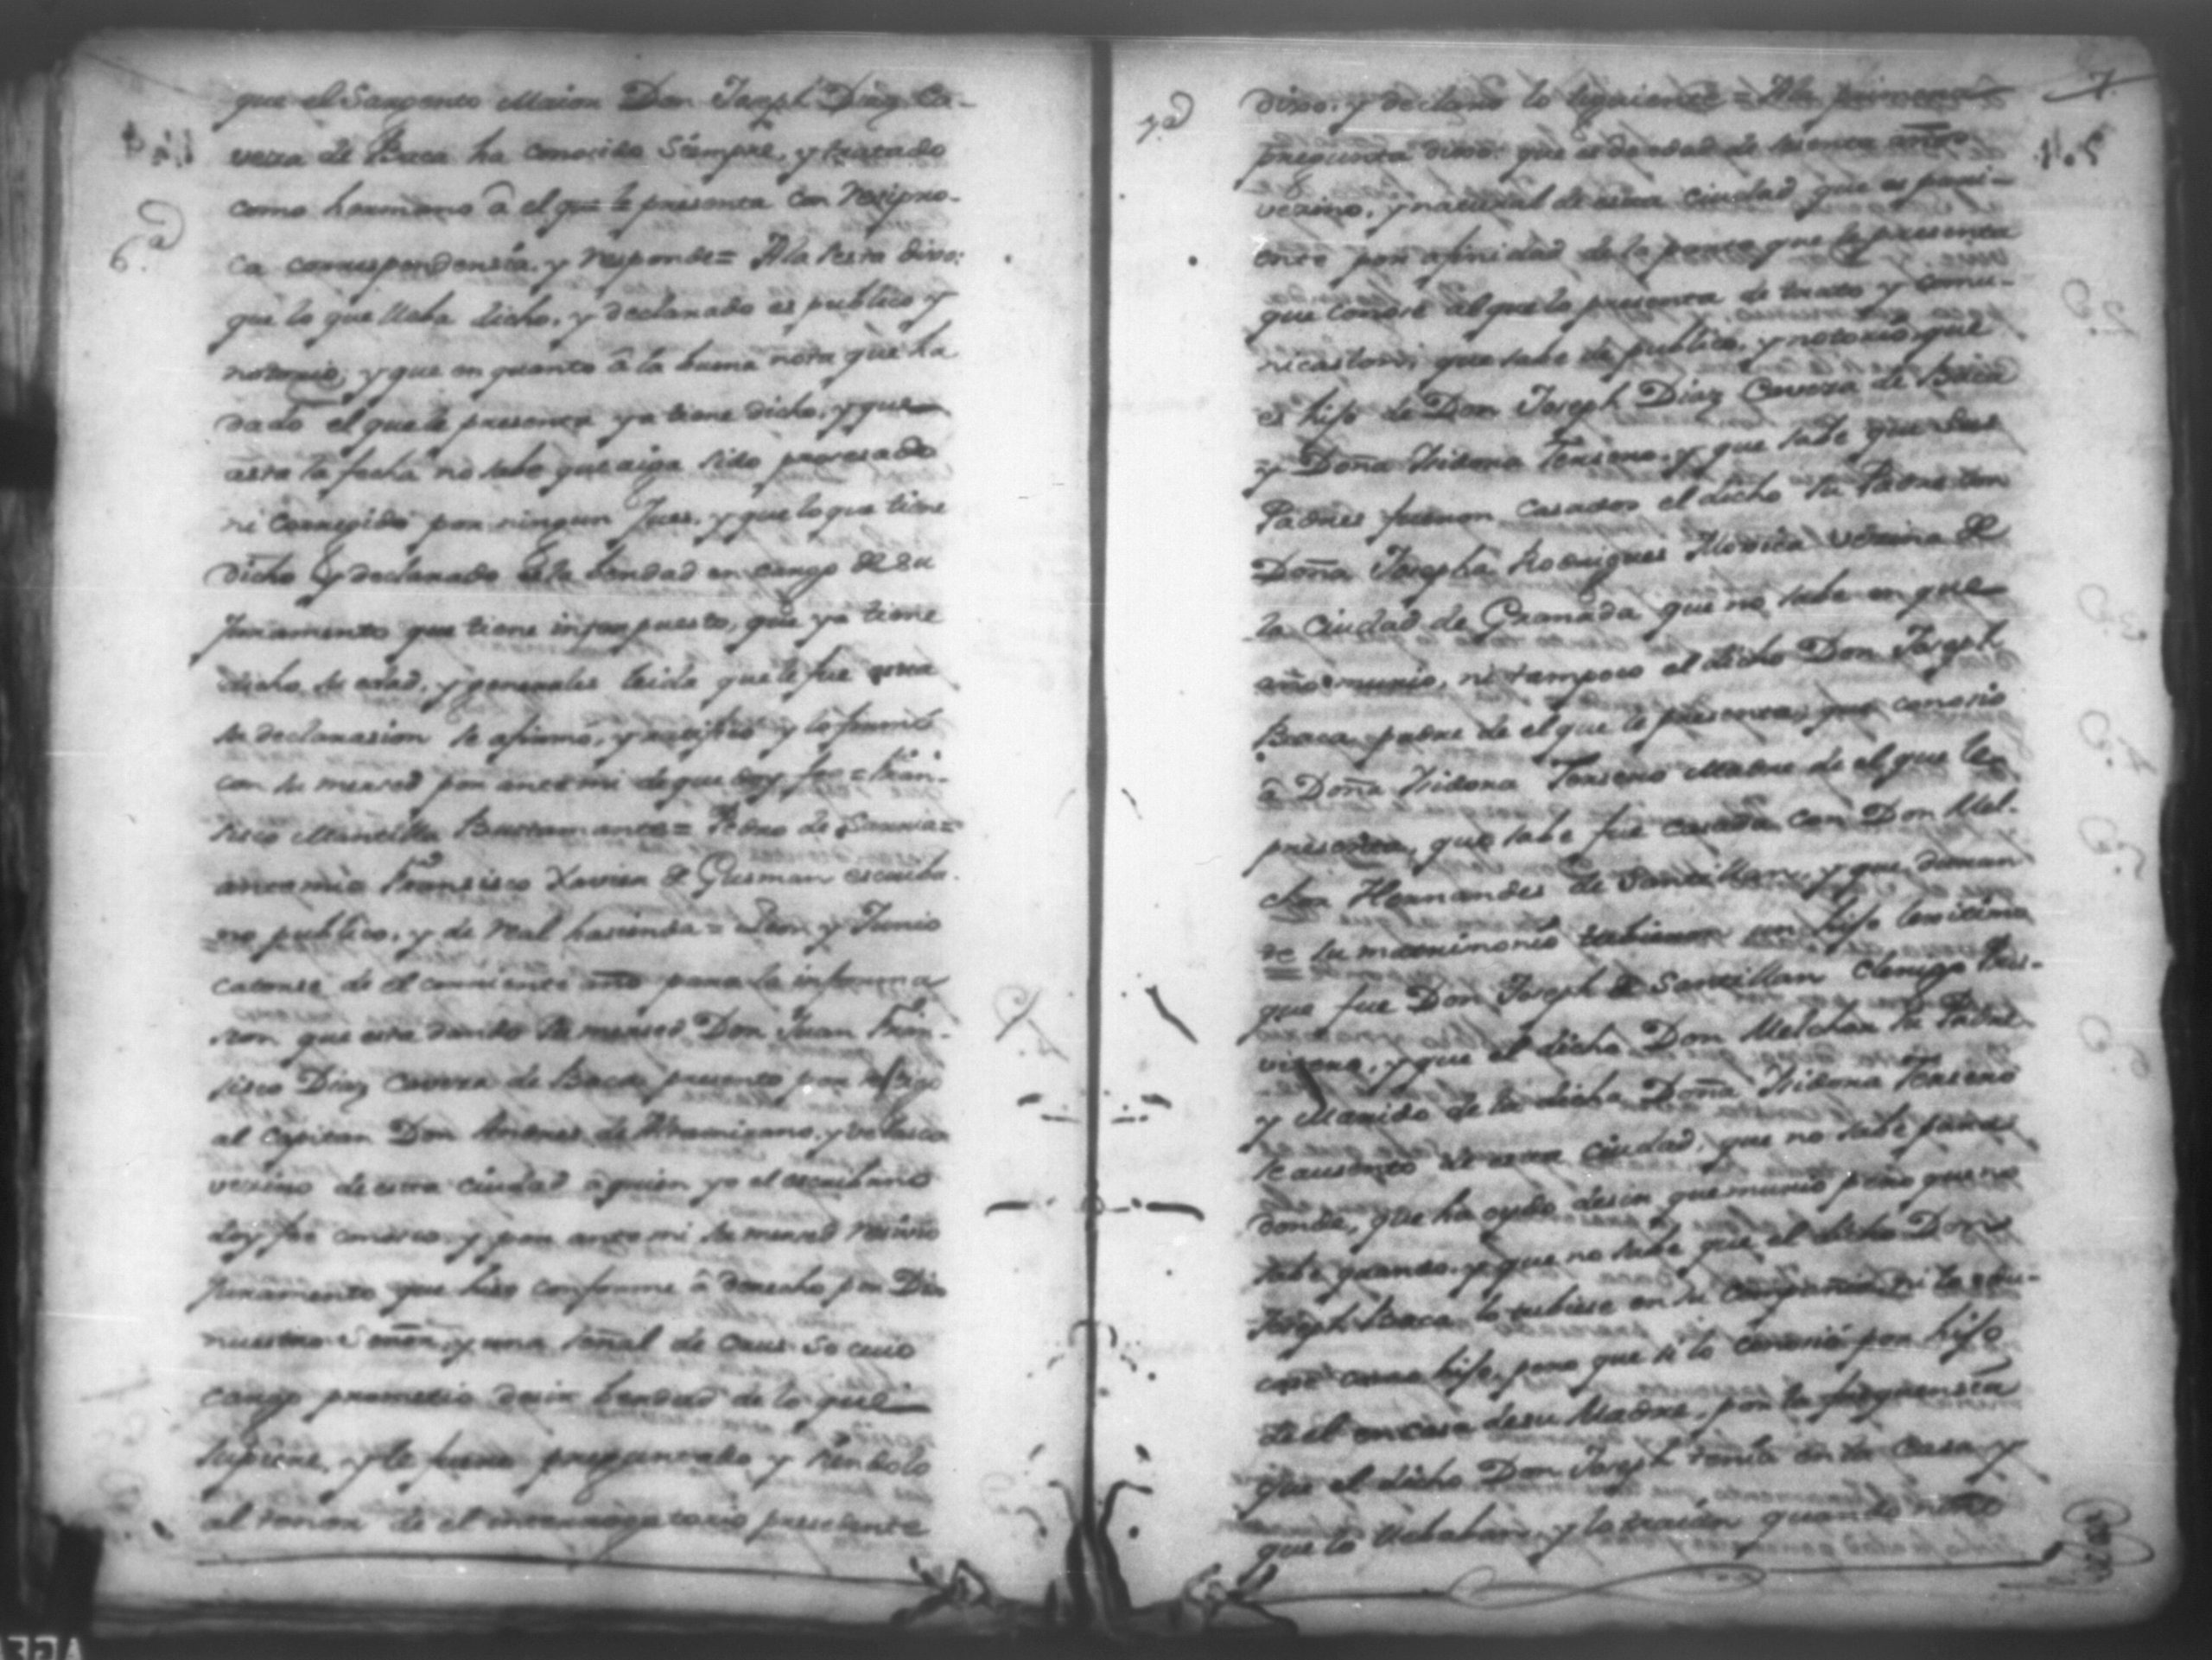 que el Sargento Maior Don Joseph Diaz Ca-
veza de Baca ha conosido Siempre, y tratado
como hermano â el que le presenta con resipro-
6.ª
ca correspondensia, y responde = A la sesta dixo:
que lo que lleba dicho, y declarado es publico y
notorio; y que en quanto â la buena nota que ha
dado el que le presenta ya tiene dicho, y que
asta la fecha no sabe que aiga sido proсesado
ni corregido por ningun Jues, y que lo que tiene
dicho y declarado es la berdad en cargo de su
Juramento que tiene interpuesto, que ya tiene
dicho su edad, y generales leida que le fue esta
su declarasion se afirmo, y ratifico y lo firmó
con su mersed por ante mi de que doy fee = Fran-
sisco Mantilla Bustamante = Pedro de
ante mi = Fransisco Xavier de Gusman escriba-
no publico, y de Real hasienda = Leon y Junio
catorse de el corriente año para la informa
sion que esta dando su mersed Don Juan Fran-
sisco Diaz Caveza de Baca presento por testigo
al Capitan Don Andres de y Velasco
vezino de esta ciudad a quien yo el escribano
doy fee conosco y por ante mi su mersed resivio
Juramento que hiso conforme â derecho por Dios
nuestro Señor, y una señal de Crus so cuio
cargo prometio desir berdad de lo que
supiere, y le fuere preguntado y siendolo
al tenor de el interrogatorio presedente
7.
1.ª
dixo, y declaro lo siguiente = A la primera
pregunta dixo: que es de edad de años
vezino, y natural de esta ciudad, que es pari-
ente por afinidad de la parte que le presenta
que conose al que lo presenta de trato y comu-
nicasion, que sabe de publico, y notorio que
es hijo de Don Joseph Diaz Caveza de Baca
y Doña Isidora Terseno, y que sabe que sus
Padres fueron casados el dicho su Padre con
Doña Josepha Rodrigues vezina de
la Ciudad de Granada que no sabe en que
año murio, ni tampoco el dicho Don Joseph
Baca padre de el que le presenta, que conosio
â Doña Isidora Terseno Madre de el que le
presenta, que sabe fue casada con Don Mel-
chor Hernandes de Santillan, y que duran
te su matrimonio tubieron un hijo lexitimo
que fue Don Joseph de Santillan Clerigo Pres-
vitero, y que el dicho Don Melchor su Padre
y Marido de la dicha Doña Isidora Terseno
se ausento de esta ciudad, que no sabe para
donde, que ha oydo desir que murio pero que no
sabe quando, y que no sabe que el dicho Don
Joseph Baca lo tubiese en su Compañia, ni lo edu-
case como hijo, pero que si lo conosia por hijo
de el en casa de su Madre, por la frequensia
que el dicho Don Joseph tenia en la casa y
que lo llebaban, y lo traian quando niño